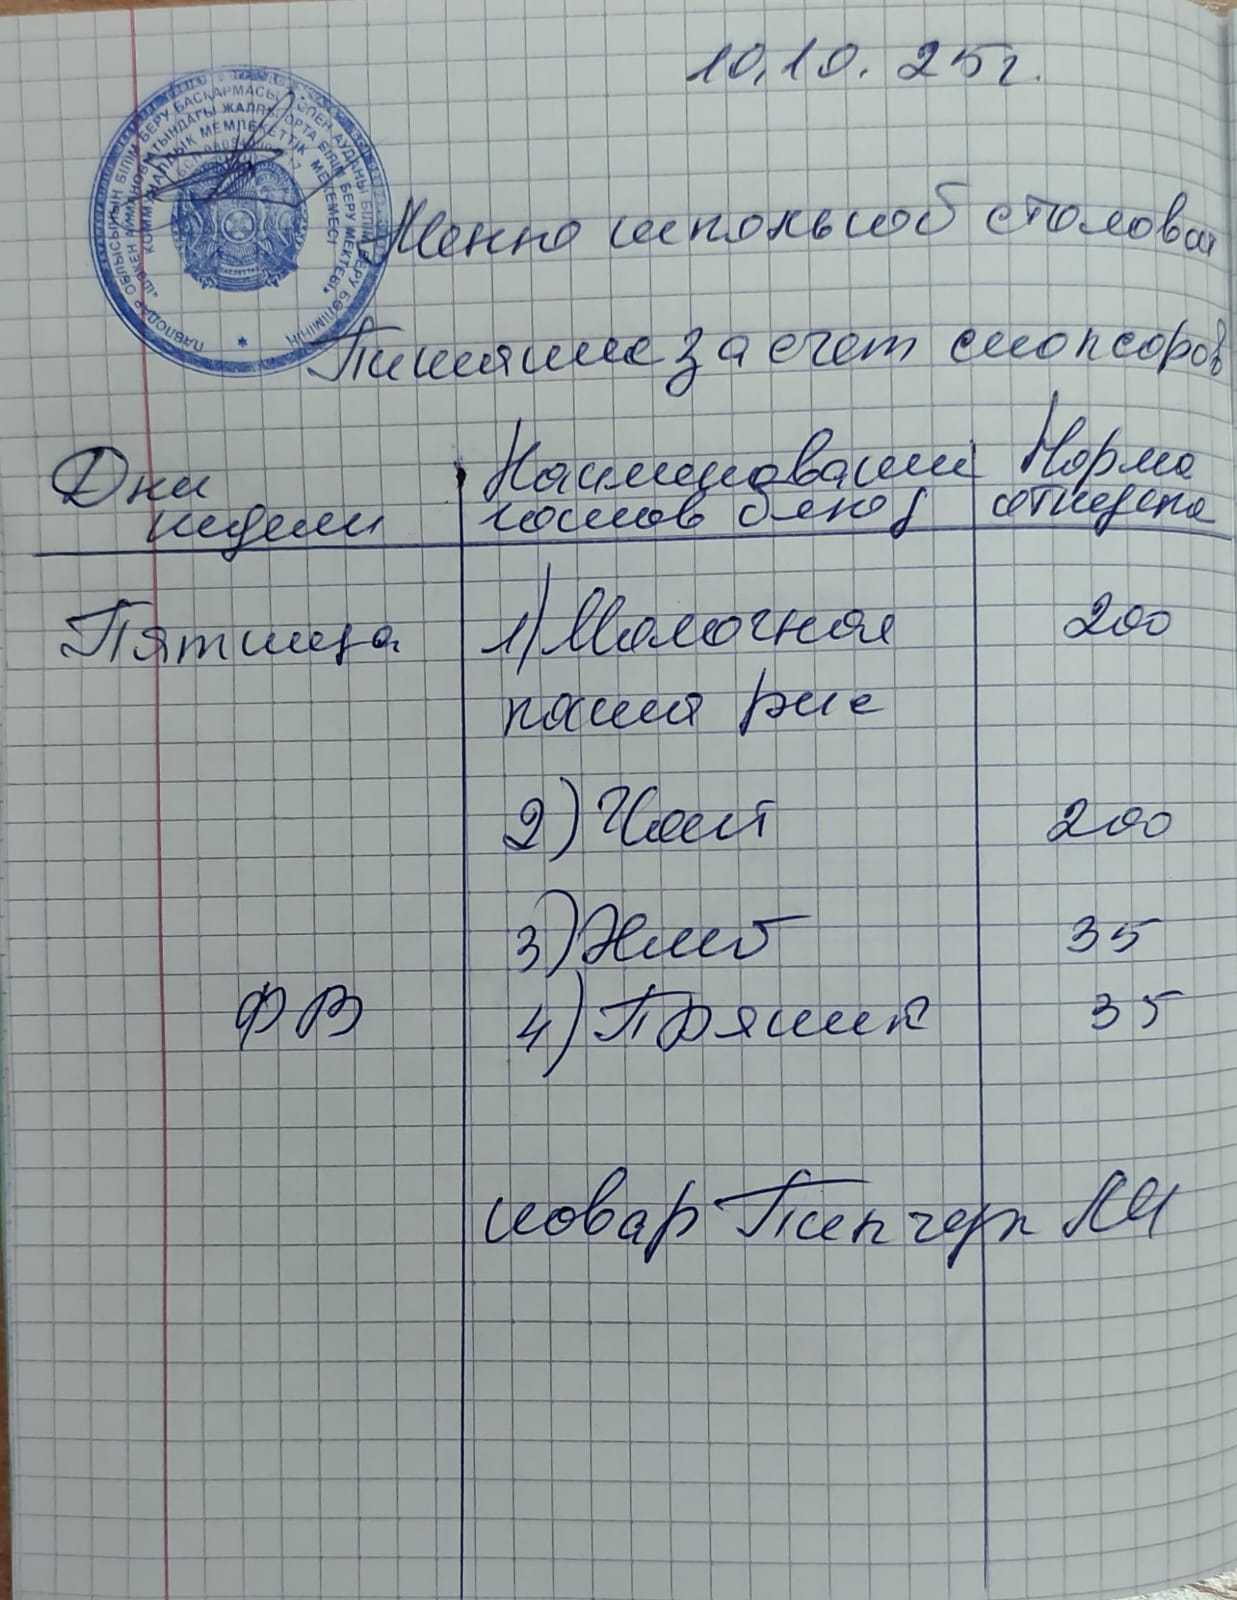 10.10.25г.
ПАВЛОДАР ОБЛЫСЫНЫҢ БІЛІМ БЕРУ БАСҚАРМАСЫ АУДАНЫ БІЛІМ БЕРУ БӨЛІМІНІҢ
АТЫНДАҒЫ ЖАЛПЫ ОРТА БІЛІМ БЕРУ МЕКТЕБІ
КОММУНАЛДЫҚ МЕМЛЕКЕТТІК МЕКЕМЕСІ
Меню школьной столовой
Питание за счет спонсоров
Дни недели
Наименование готов блюд
Норма отпуска
Пятница
1) Молочная 200
каша рис
2) Чай 200
3) Хлеб 35
ФВ 4) Пряник 35
повар